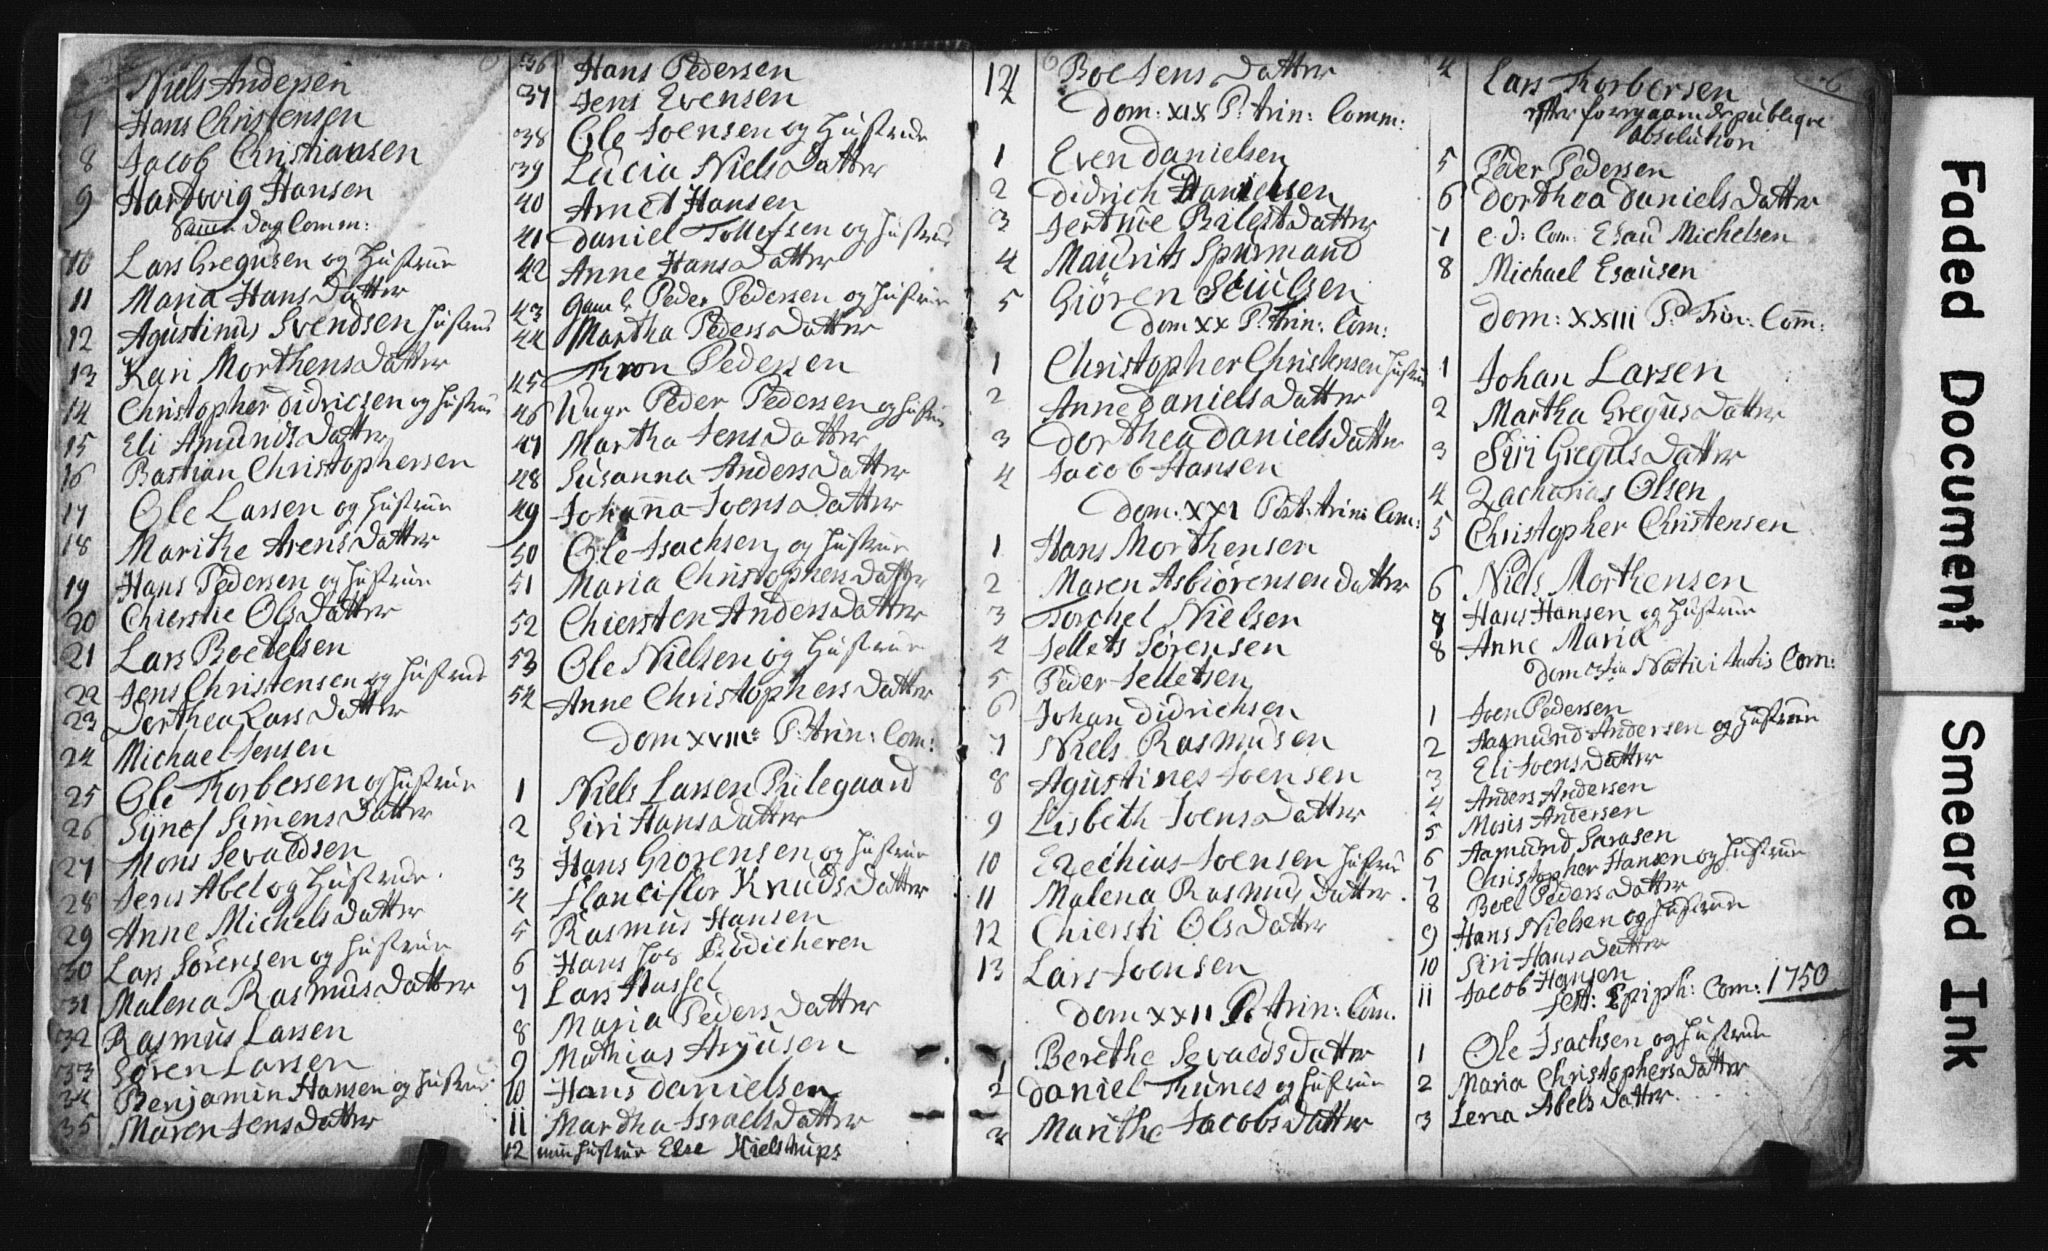 Niels Andersen
7 Hans Christensen
8 Jacob Christiansen
9 Hartvig Hansen
Samme Dag Comm:
10 Lars Gregusen og Hustrue
11 Maria Hans Datter
12 Agustinus Svendsen Hustrue
13 Kari Morthens Datter
14 Christopher Didricsen og Hustrue
15 Eli Amunds Datter
16 Bastian Christophersen
17 Ole Larsen og Hustrue
18 Marithe Arens Datter
19 Hans Pedersen og Hustrue
20 Chierstie Ols Datter
21 Lars Boetelsen
22 Jens Christensen og Hustrue
23 Dorthea Lars Datter
24 Michael Jensen
25 Ole Torbersen og Hustrue
26 Synof Simens Datter
27 Mons Sevaldsen
28 Jens Abel og Hustrue.
29 Anne Michels Datter
30 Lars Sørensen og Hustrue
31 Malena Rasmus Datter
32 Rasmus Larsen
33 Søren Larsen
34 Benjamin Hansen og Hustrue
35 Maren Jens Datter
36 Hans Pedersen
37 Jens Evensen
38 Ole Joensen og Hustrue
39 Lucia Niels Datter
40 Arnet Hansen
41 Daniel Tollefsen og Hustrue
42 Anne Hans Datter
43 Gaml: Peder Pedersen og Hustrue
44 Martha Peders Datter
45 Tron Pedersen
46 Unge Peder Pedersen og Hustrue
47 Martha Jens Datter
48 Susanna Anders Datter
49 Johanna Joens Datter
50 Ole Isachsen og Hustrue
51 Maria Christophers Datter
52 Chiersten Anders Datter
53 Ole Nielsen og Hustrue
54 Anne Christophers Datter
Dom XVIII P: Trin: Com:
1 Niels Larsen Piilegaard
2 Siri Hans Datter
3 Hans Giorensen og Hustrue
4 Flanciflor Knuds Datter
5 Rasmus Hansen
6 Hans hos Bødicheren
7 Lars Hassel
8 Maria Peders Datter
9 Mathias Aryusen
10 Hans Danielsen
11 Martha Israels Datter
12 min Hustrue Else Kielstrups
14 Boel Jens Datter
Dom: XIX P: Trin: Comm:
1 Even Danielsen
2 Didrich Danielsen
3 Jertrue Datter
4 Maurits Spurmand
5 Giören Poulsen
Dom XX P: Trin: Com:
1 Christopher Christensen Hustrue
2 Anne Daniels Datter
3 Dorthea Daniels Datter
4 Jacob Hansen
Dom: XXI Post: Trin: Com:
1 Hans Morthensen
2 Maren Asbiörensen Datter
3 Torchel Nielsen
4 Jellets Sörensen
5 Peder Jelletsen
6 Johan Didrichsen
7 Niels Rasmusen
8 Agustines Joensen
9 Lisbeth Joens Datter
10 Ezechias Joensen Hustrue
11 Malena Rasmus Datter.
12 Chiersti Ols Datter
13 Lars Joensen
Dom XXII P: Trin: Com.
1 Berethe Sevalds Datter
2 Daniel Tunes og Hustrue
3 Marithe Jacobs Datter
6
4 Lars Torbersen
efter foregaaende publique
absolution
5 Peder Pedersen
6 Dorthea Daniels Datter
7 e. d: Com: Esau Michelsen
8 Michael Esausen
Dom: XXIII P: Trin: Com:
1 Johan Larsen
2 Martha Gregus Datter
3 Siri Gregus Datter
4 Zacharias Olsen
5 Christopher Christensen
6 Niels Morthensen
7 Hans Hansen og Hustrue
8 Anne Maria
Dom Nativitatis Com:
1 Joen Pedersen
2 Aamund Andersen og Hustrue
3 Eli Joens Datter
4 Anders Andersen
5 Mosis Andersen
6 Aamund Larasen
7 Christopher Hansen og Hustrue
8 Boel Peders Datter
9 Hans Nielsen og Hustrue
10 Siri Hans Datter
11 Jacob Hansen
Fest: Epiph: Com: 1750
1 Ole Isachsen og Hustrue
2 Maria Christophers Datter
3 Lena Abels Datter
Faded Document
Smeared Ink